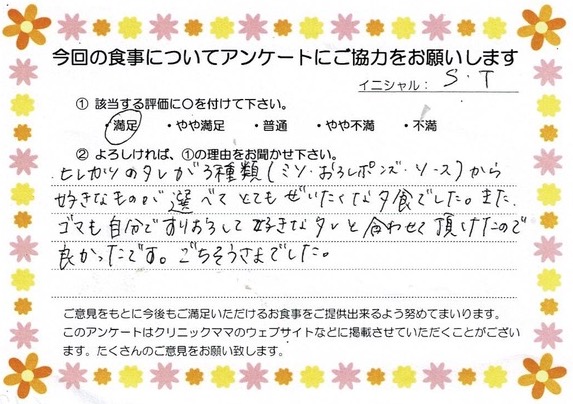 今回の食事についてアンケートにご協力をお願いします
イニシャル： S・T
① 該当する評価に○を付けて下さい。
・満足 ・やや満足 ・普通 ・やや不満 ・不満
② よろしければ、①の理由をお聞かせ下さい。
ヒレカツのタレが3種類（ミソ・おろしポンズ・ソース）から
好きなものが選べてとてもぜいたくな夕食でした。また、
ゴマも自分ですりおろして好きなタレと合わせて頂けたので
良かったです。ごちそうさまでした。
ご意見をもとに今後もご満足いただけるお食事をご提供出来るよう努めてまいります。
このアンケートはクリニックママのウェブサイトなどに掲載させていただくことがござい
ます。たくさんのご意見をお願い致します。